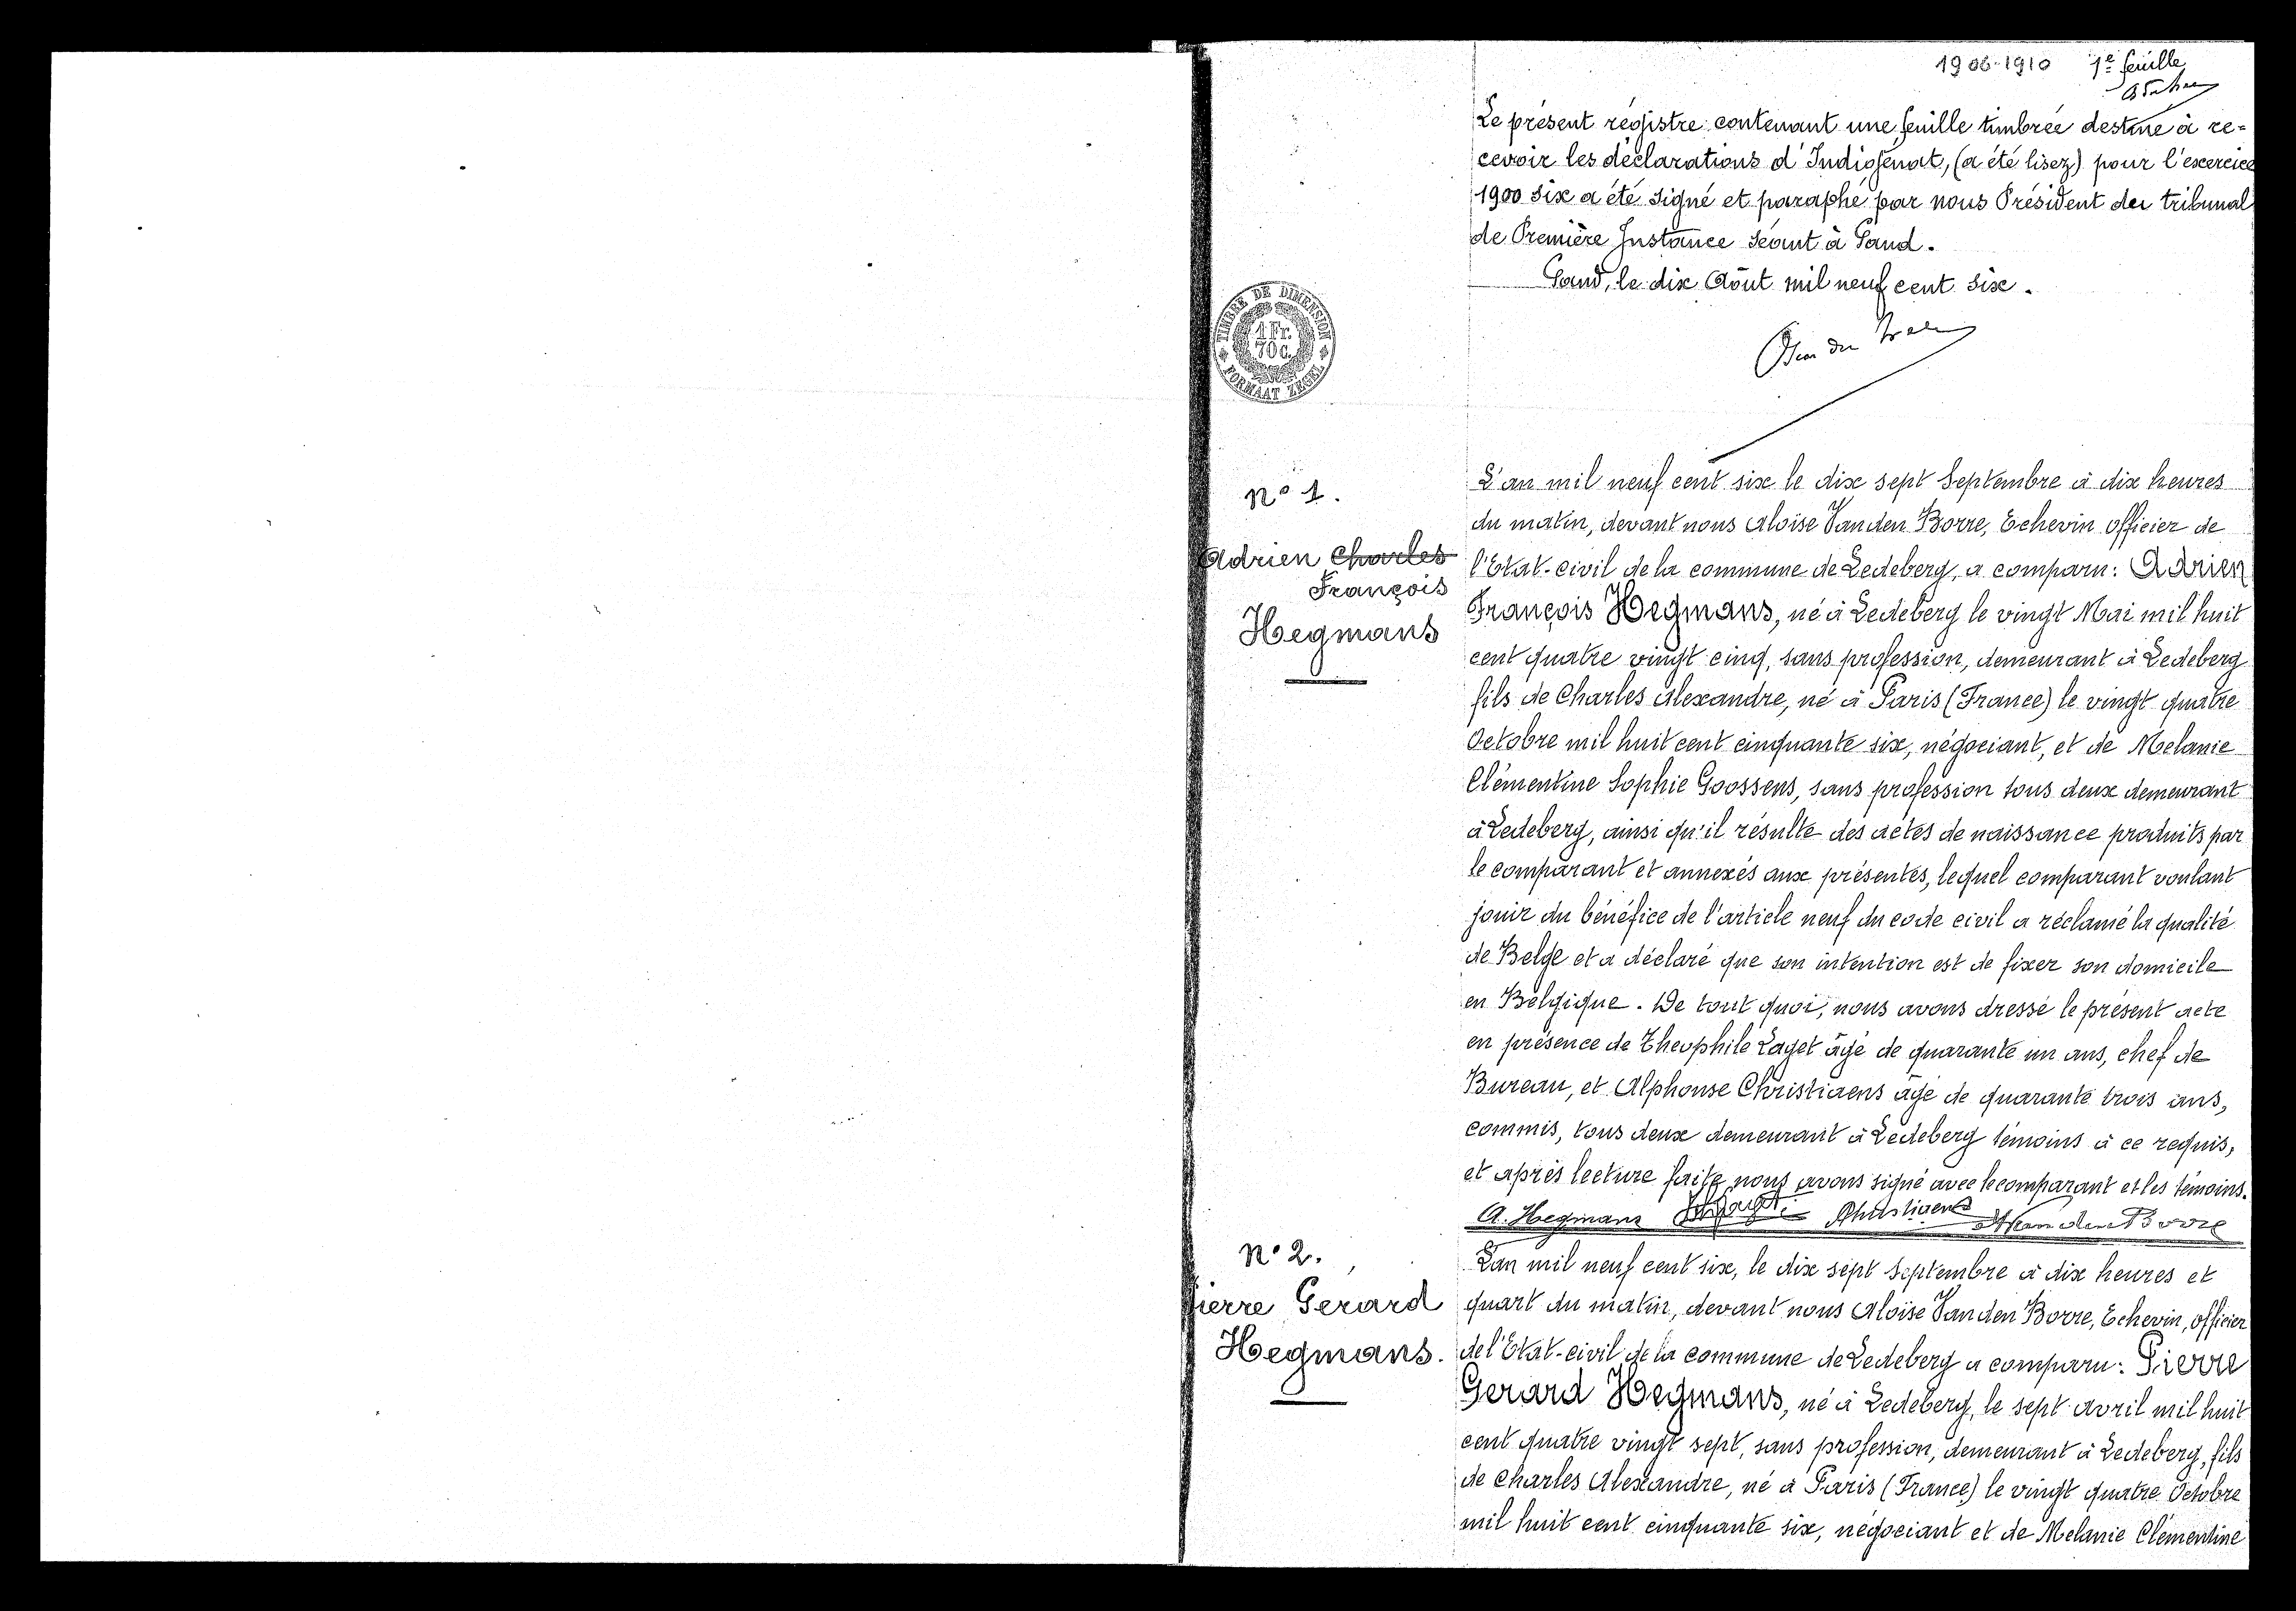 1906-1910 1e feuille
Le présent régistre contenant une feuille timbrée destiné à re=
cevoir les déclarations d'Indigénat, (a été lisez) pour l'exercice
1900 six a été signé et paraphé par nous Président du tribunal
de Première Instance séant à Gand.
Gand, le dix Août mil neuf cent six.
TIMBRE DE DIMENSION
1 Fr.
70 c.
FORMAAT ZEGEL
N° 1.
Adrien Charles
François
Hegmans
L'an mil neuf cent six le dix sept Septembre à dix heures
du matin, devant nous Aloïse Van den Borre, Echevin officier de
l'Etat-civil de la commune de Ledeberg, a comparu: Adrien
François Hegmans, né à Ledeberg le vingt Mai mil huit
cent quatre vingt cinq, sans profession, demeurant à Ledeberg
fils de Charles Alexandre, né à Paris (France) le vingt quatre
Octobre mil huit cent cinquante six, négociant, et de Melanie
Clémentine Sophie Goossens, sans profession tous deux demeurant
à Ledeberg, ainsi qu'il résulte des actes de naissance produits par
le comparant et annexés aux présentes, lequel comparant voulant
jouir du bénéfice de l'article neuf du code civil a réclamé la qualité
de Belge et a déclaré que son intention est de fixer son domicile
en Belgique. De tout quoi, nous avons dressé le présent acte
en présence de Theophile Laget âgé de quarante un ans, chef de
Bureau, et Alphonse Christiaens âgé de quarante trois ans,
commis, tous deux demeurant à Ledeberg témoins à ce requis,
et après lecture faite nous avons signé avec le comparant et les témoins.
A. Hegmans Christiaens Van den Borre
N° 2.
Pierre Gerard
Hegmans.
L'an mil neuf cent six, le dix sept Septembre à dix heures et
quart du matin, devant nous Aloïse Van den Borre, Echevin, officier
de l'Etat-civil de la commune de Ledeberg a comparu: Pierre
Gerard Hegmans, né à Ledeberg, le sept avril mil huit
cent quatre vingt sept, sans profession, demeurant à Ledeberg, fils
de Charles Alexandre, né à Paris (France) le vingt quatre Octobre
mil huit cent cinquante six, négociant et de Melanie Clémentine